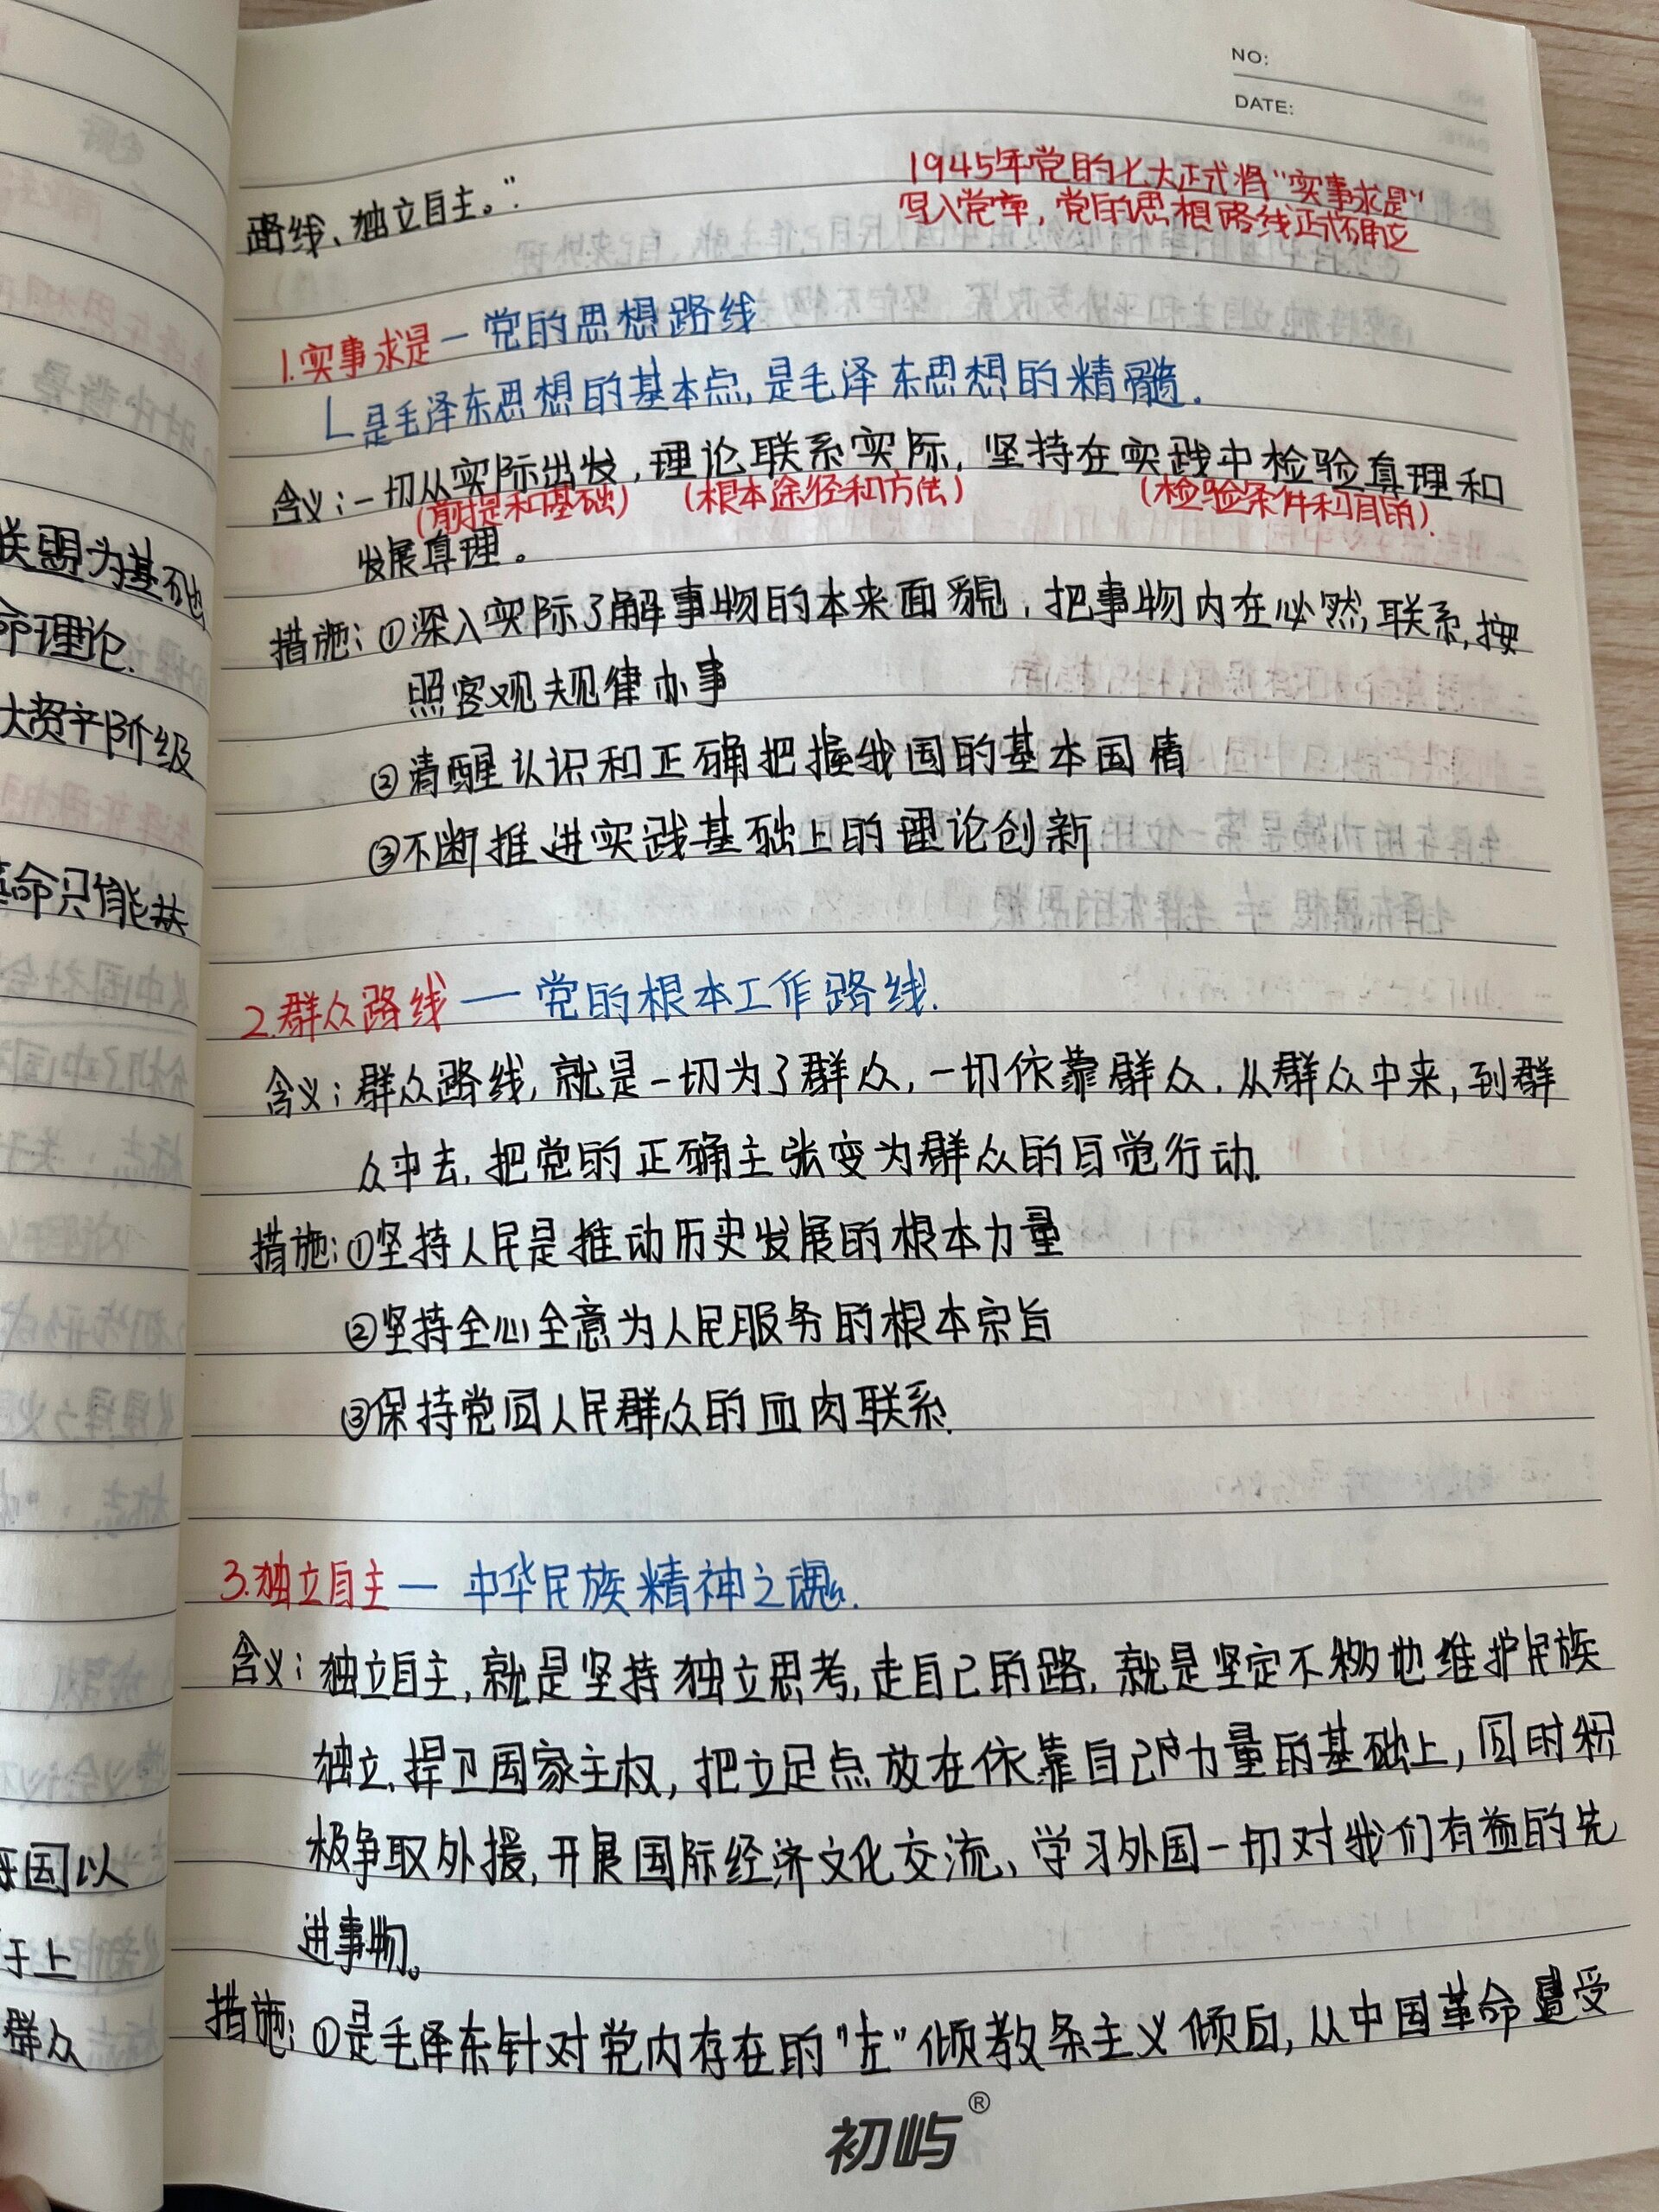 NO:
DATE:
1945年党的七大正式将“实事求是”
写入党章，党的思想路线正式确立
路线、独立自主。”
1.实事求是—党的思想路线
是毛泽东思想的基本点，是毛泽东思想的精髓.
含义：一切从实际出发，理论联系实际，坚持在实践中检验真理和
(前提和基础) (根本途径和方法) (检验条件和目的).
发展真理。
措施：①深入实际了解事物的本来面貌，把事物内在必然联系，按
照客观规律办事
②清醒认识和正确把握我国的基本国情
③不断推进实践基础上的理论创新
2.群众路线—党的根本工作路线.
含义：群众路线，就是一切为了群众，一切依靠群众．从群众中来，到群
众中去，把党的正确主张变为群众的自觉行动.
措施：①坚持人民是推动历史发展的根本力量
②坚持全心全意为人民服务的根本宗旨
③保持党同人民群众的血肉联系.
3.独立自主—中华民族精神之魂.
含义：独立自主，就是坚持独立思考，走自己的路，就是坚定不移地维护民族
独立、捍卫国家主权，把立足点放在依靠自己力量的基础上，同时积
极争取外援，开展国际经济文化交流、学习外国一切对我们有益的先
进事物。
措施：①是毛泽东针对党内存在的“左”倾教条主义倾向，从中国革命遭受
初屿®
联盟为基础
命理论.
大资产阶级
革命只能共
国以
于上
群众